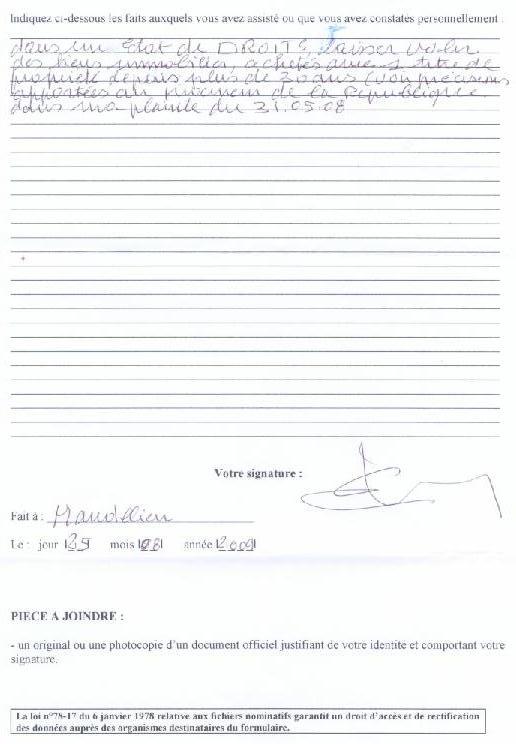 Indiquez ci-dessous les faits auxquels vous avez assisté ou que vous avez constatés personnellement :
dans un Etat de DROITS, laisser voler
des biens immobilier, achetés avec 1 titre de
propriété depuis plus de 30 ans (voir précisions
apportées au procureur de la République
dans ma plainte du 21.05.08
Votre signature :
Fait à : Mandelieu
Le : jour mois année 2009
PIECE A JOINDRE :
- un original ou une photocopie d'un document officiel justifiant de votre identité et comportant votre
signature.
La loi n°78-17 du 6 janvier 1978 relative aux fichiers nominatifs garantit un droit d'accès et de rectification
des données auprès des organismes destinataires du formulaire.